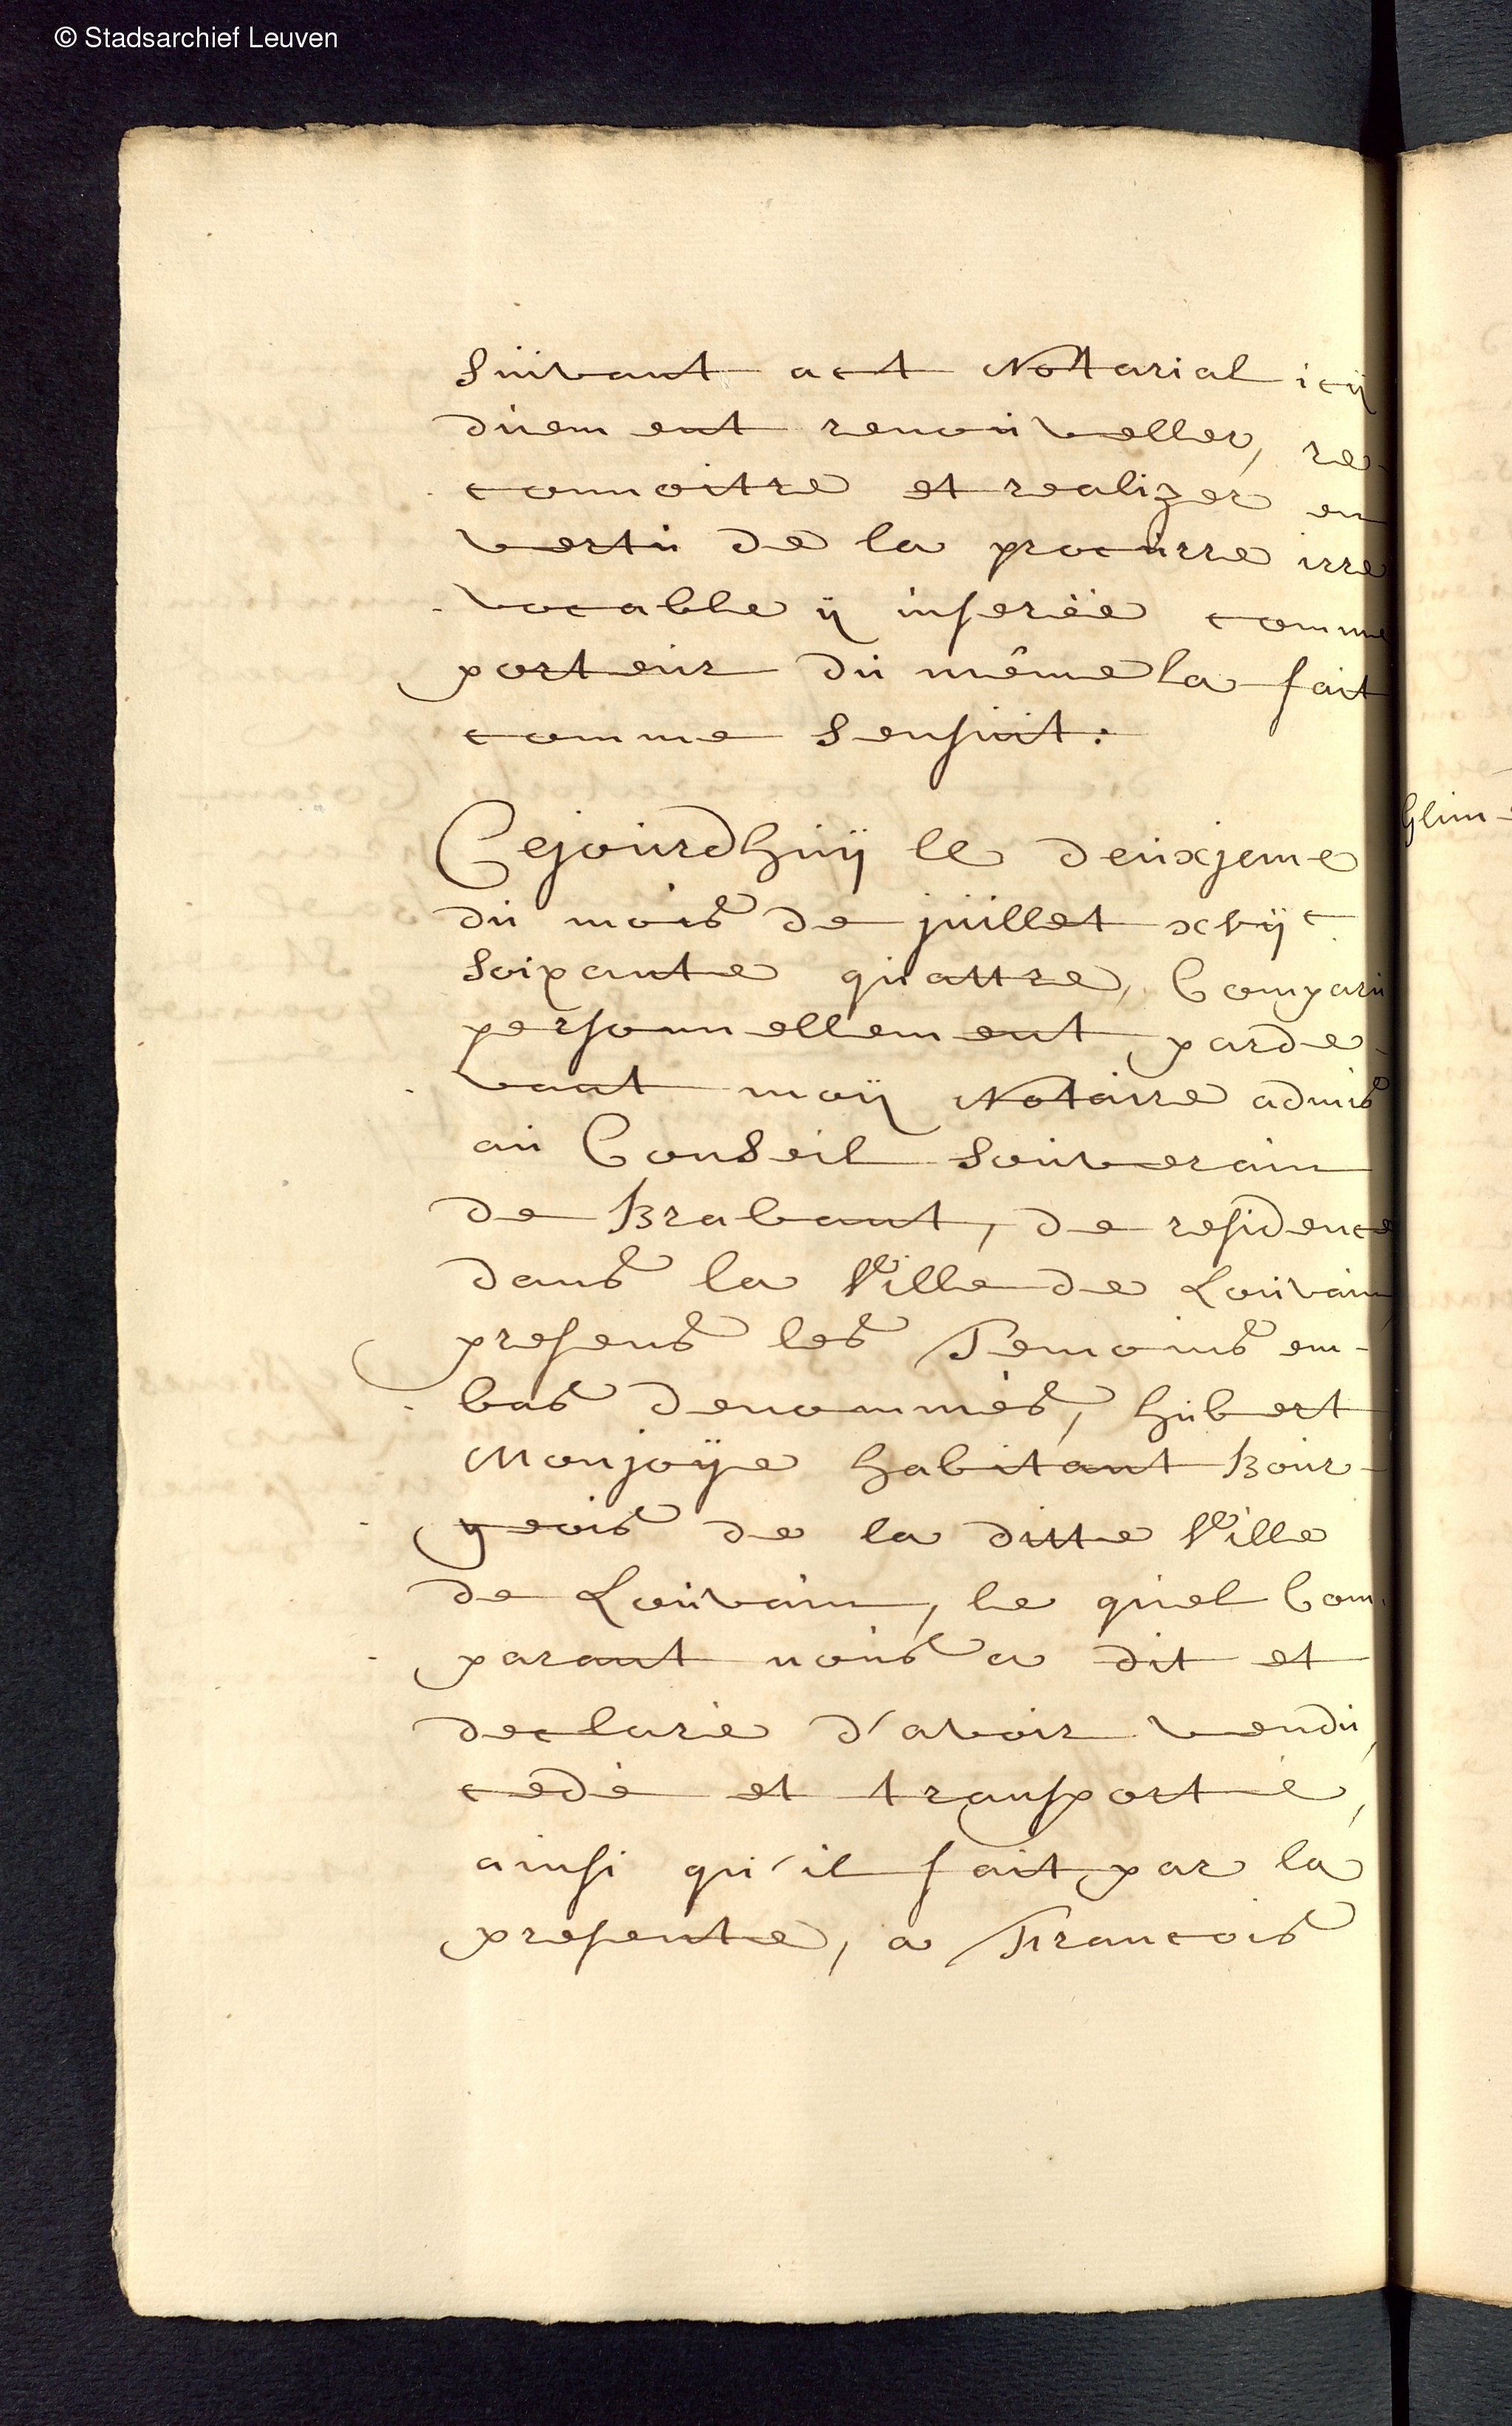 © Stadsarchief Leuven
Suivant act Notarial icÿ
duement renouveller, re-
connoitre et realizer en
vertu de la procurre irre
vocable ÿ inserée comme
porteur du même la fait
comme Sensuit:
Cejourdhuÿ le deuxjeme
du mois de juillet xvijc
Soixante quattre, Comparu
personnellement parde-
vant moÿ Notaire admis
au Conseil Souverain
de Brabant, de residence
dans la Ville de Louvain,
presens les Temoins em-
bas denommés, hubert
Monjoÿe habitant Bour-
geois de la ditte Ville
de Louvain, le quel Com-
parant nous a dit et
declaré d'avoir vendu,
cedé et transporté,
ainsi qu'il fait par la
presente, a Francois
Glim-